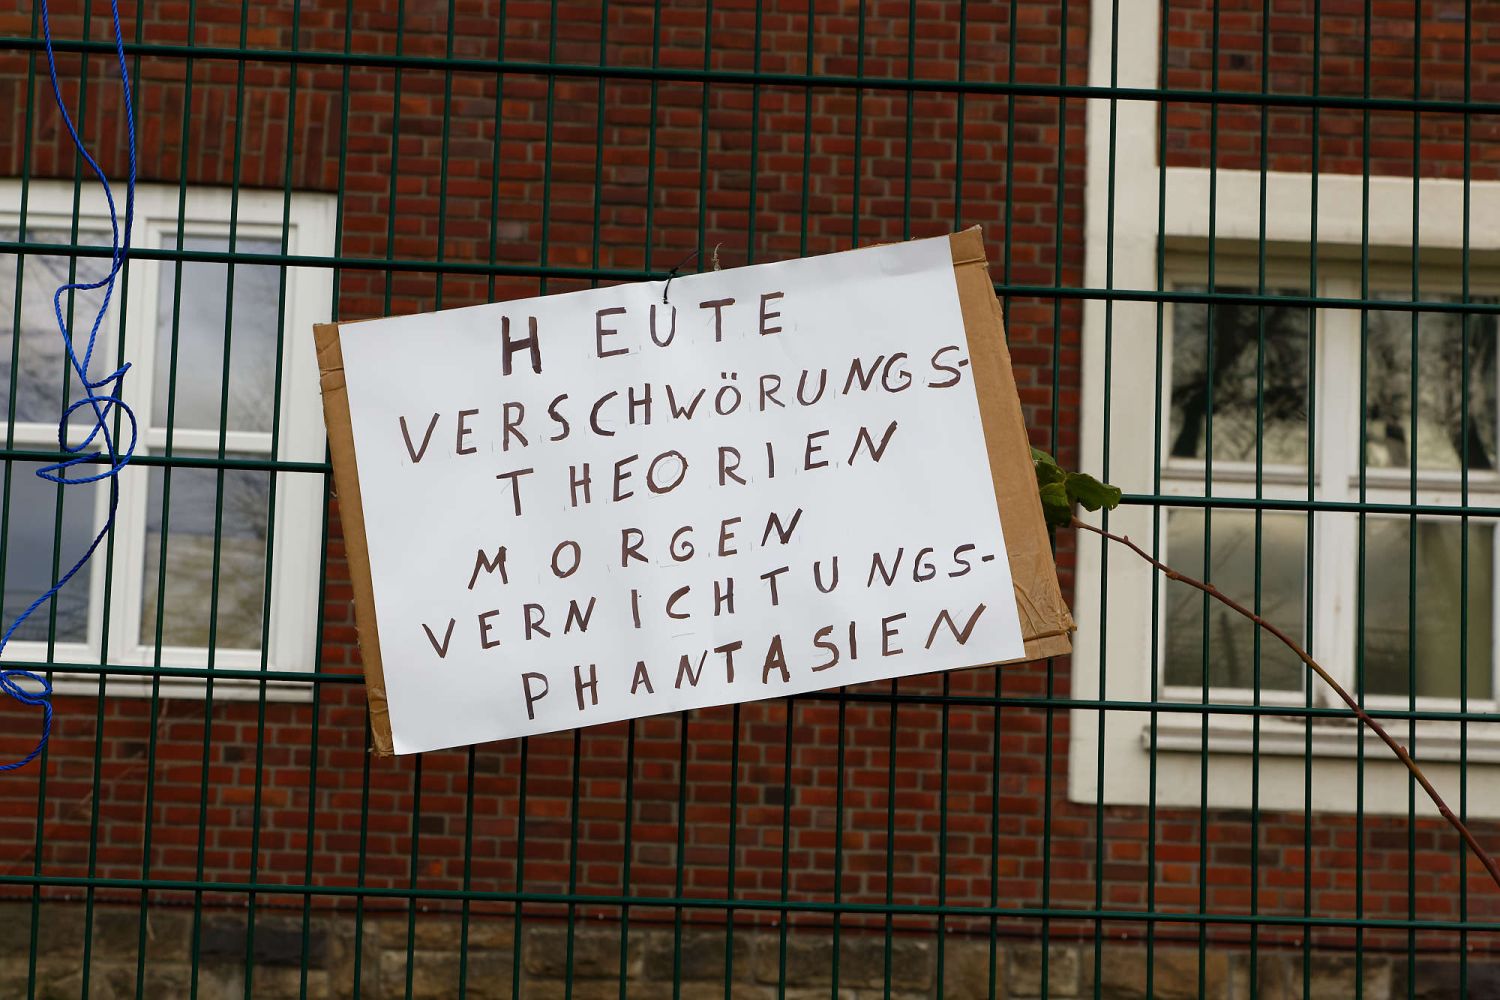 HEUTE
VERSCHWÖRUNGS-
THEORIEN
MORGEN
VERNICHTUNGS-
PHANTASIEN